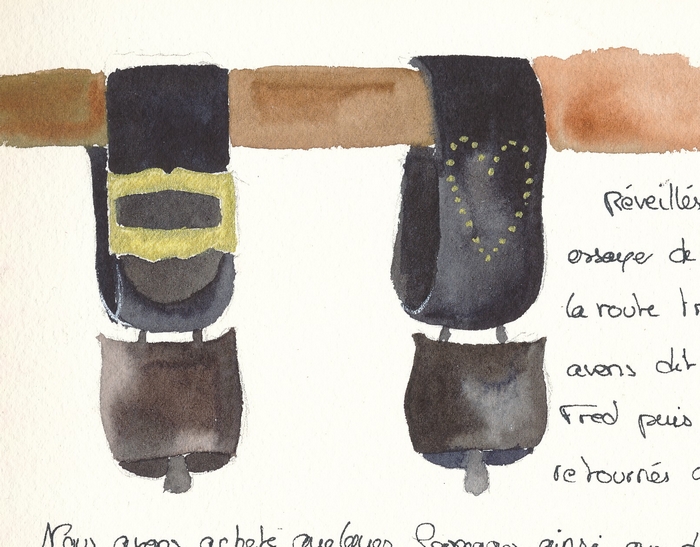 Réveillés
essaye de
la route tr
avons dit
Fred puis
retournés a
Nous avons acheté quelques fromages ainsi que d